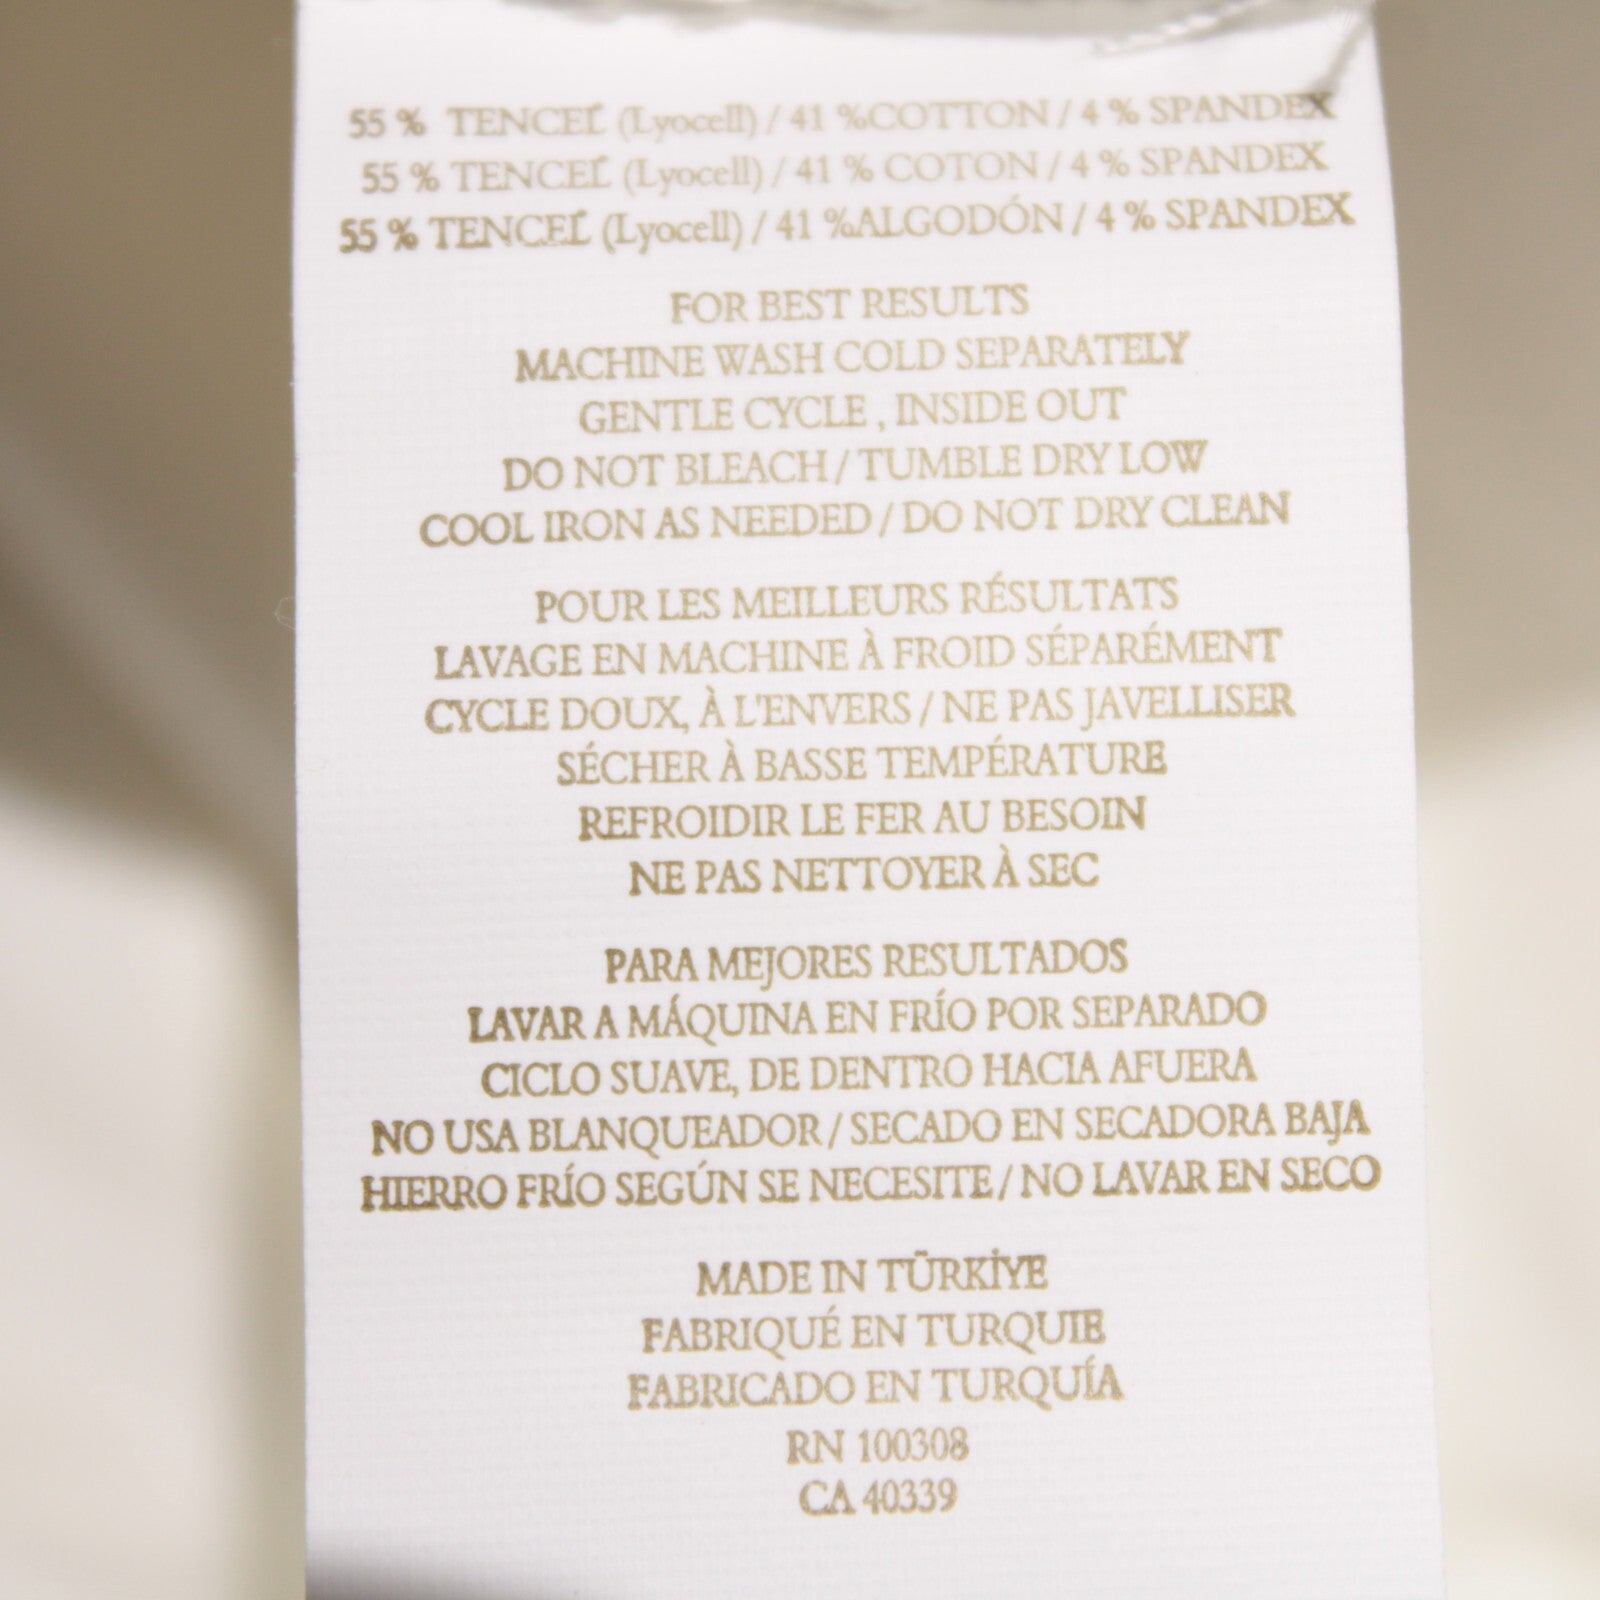 55 % TENCEL (Lyocell) / 41 %COTTON / 4 % SPANDEX
55 % TENCEL (Lyocell) / 41 % COTON / 4 % SPANDEX
55 % TENCEL (Lyocell) / 41 %ALGODÓN / 4 % SPANDEX
FOR BEST RESULTS
MACHINE WASH COLD SEPARATELY
GENTLE CYCLE , INSIDE OUT
DO NOT BLEACH / TUMBLE DRY LOW
COOL IRON AS NEEDED / DO NOT DRY CLEAN
POUR LES MEILLEURS RÉSULTATS
LAVAGE EN MACHINE À FROID SÉPARÉMENT
CYCLE DOUX, À L'ENVERS / NE PAS JAVELLISER
SÉCHER À BASSE TEMPÉRATURE
REFROIDIR LE FER AU BESOIN
NE PAS NETTOYER À SEC
PARA MEJORES RESULTADOS
LAVAR A MÁQUINA EN FRÍO POR SEPARADO
CICLO SUAVE, DE DENTRO HACIA AFUERA
NO USA BLANQUEADOR / SECADO EN SECADORA BAJA
HIERRO FRÍO SEGÚN SE NECESITE / NO LAVAR EN SECO
MADE IN TÜRKİYE
FABRIQUÉ EN TURQUIE
FABRICADO EN TURQUÍA
RN 100308
CA 40339